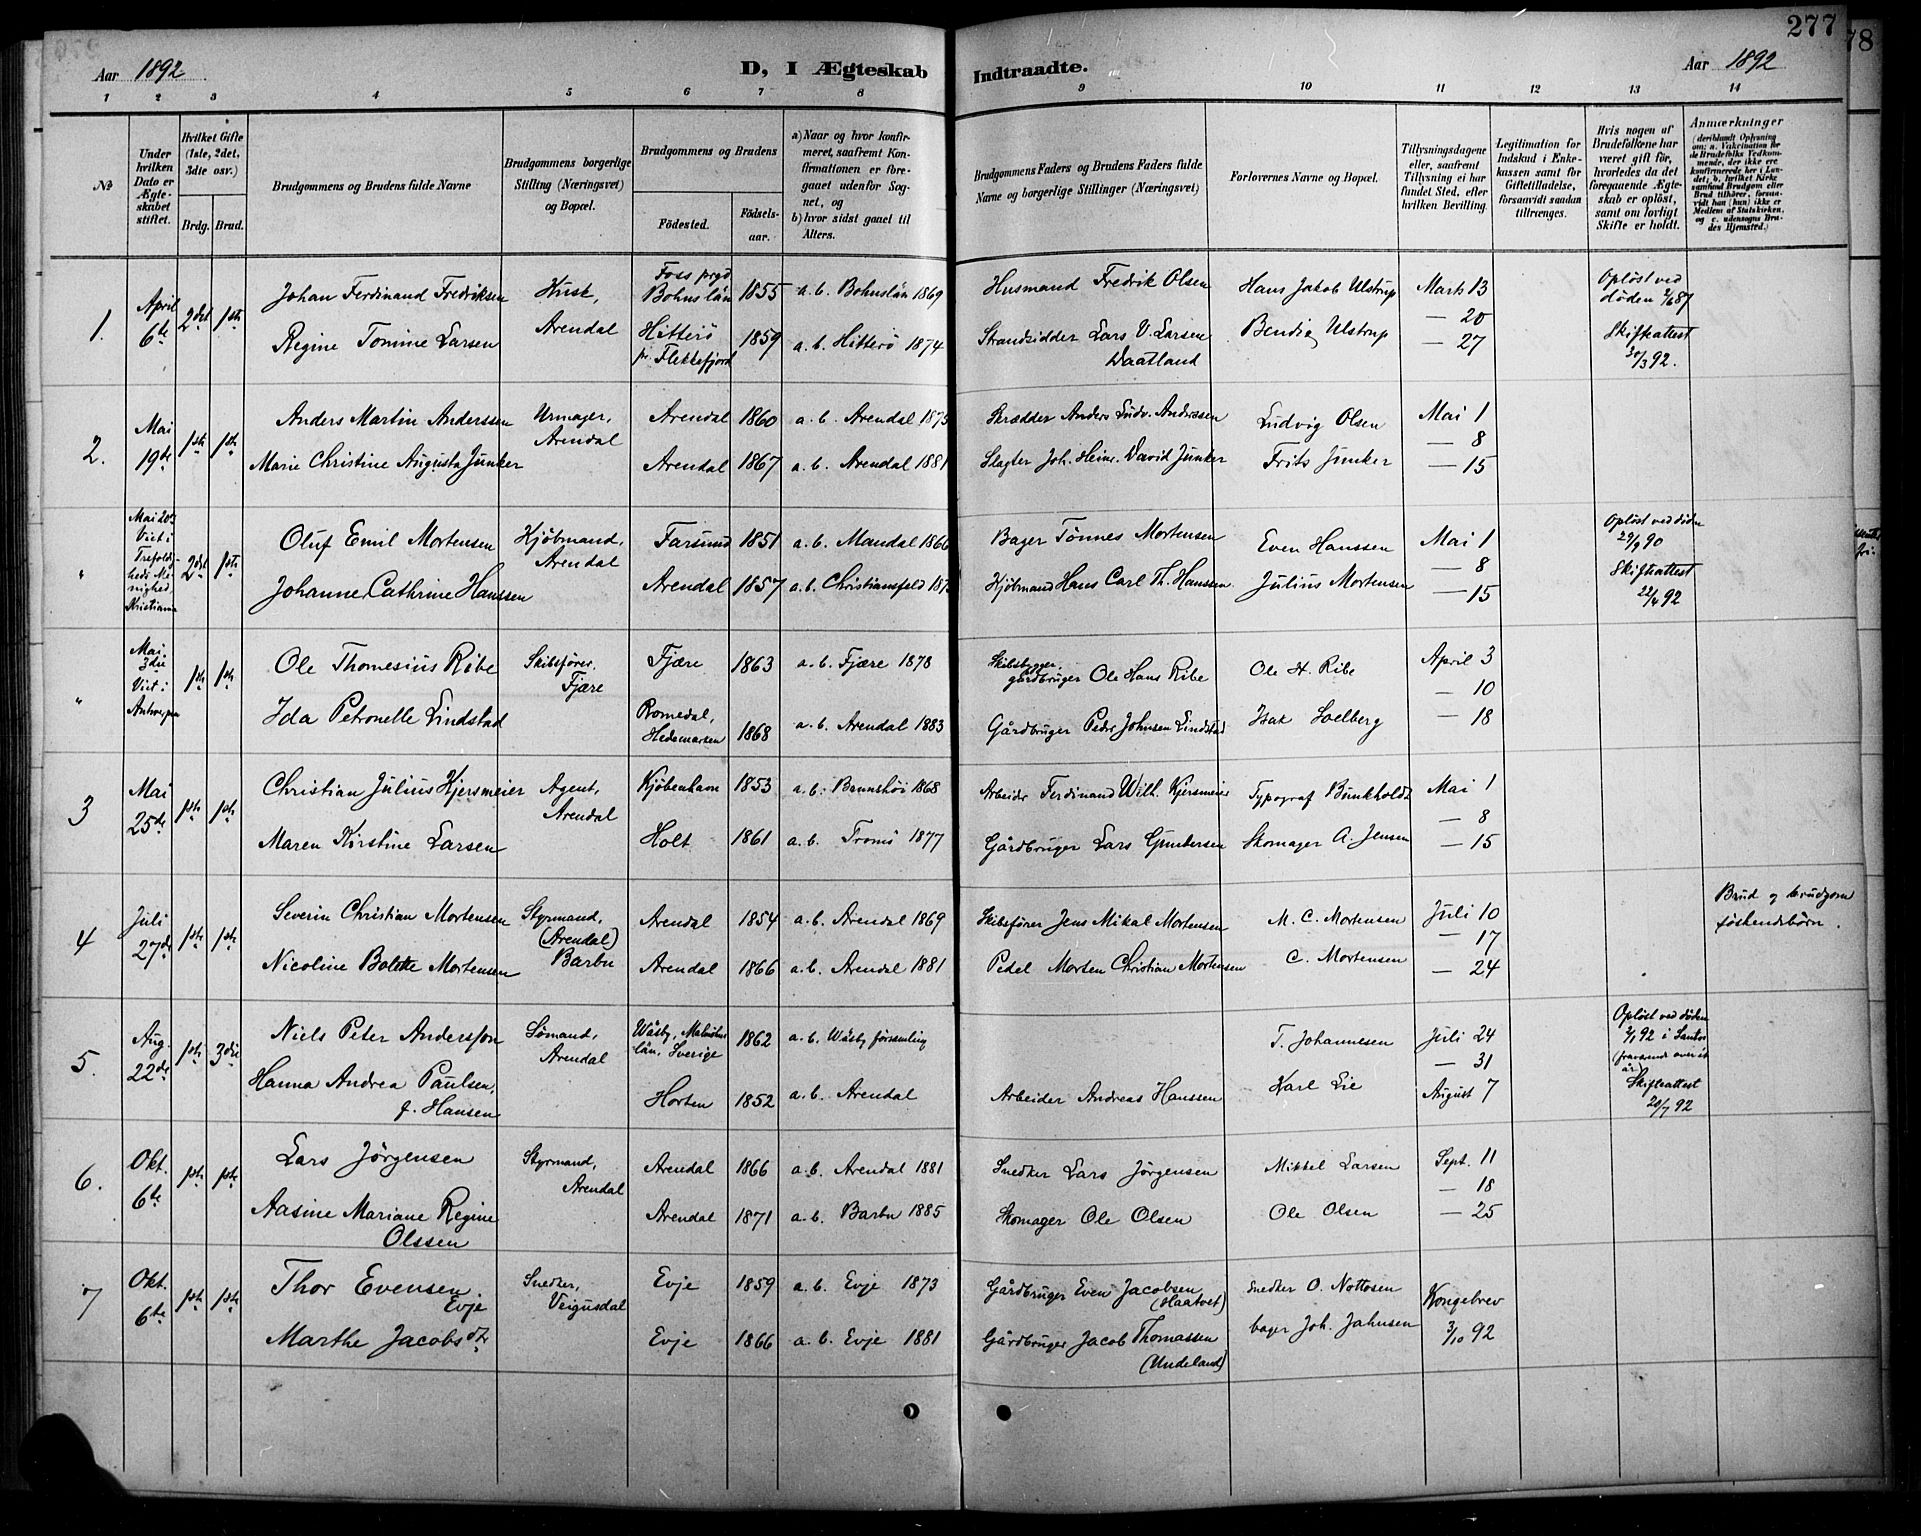 277
78
Aar 1892
D, I Ægteskab Indtraadte.
Aar 1892
1 2 3 4 5 6 7 8 9 10 11 12 13 14
No
Under hvilken Dato er Ægteskabet stiftet.
Hvilket Gifte (1ste, 2det, 3dte osv.)
Brdg. Brud.
Brudgommens og Brudens fulde Navne
Brudgommens borgerlige Stilling (Næringsvei) og Bopæl.
Brudgommens og Brudens
Fødested.
Fødselsaar.
a) Naar og hvor konfirmeret, saafremt Konfirmationen er foregaaet udenfor Sognet, og
b) hvor sidst gaaet til Alters.
Brudgommens Faders og Brudens Faders fulde Navne og borgerlige Stillinger (Næringsvei)
Forlovernes Navne og Bopæl.
Tillysningsdagene eller, saafremt Tillysning ei har fundet Sted, efter hvilken Bevilling.
Legitimation for Indskud i Enkekassen samt for Giftetilladelse, forsaavidt saadan tiltrænges.
Hvis nogen af Brudefolkene har været gift før, hvorledes da det foregaaende Ægteskab er opløst, samt om lovligt Skifte er holdt.
Anmærkninger (deriblandt Oplysning om: a. Vakcination for de Brudefolks Vedkommende, der ikke ere konfirmerede her i Landet; b. hvilket Kirkesamfund Brudgom eller Brud tilhører, forsaavidt han (hun) ikke er Medlem af Statskirken, og c. udensogns Brudes Hjemsted.)
1. April 6te 2det 1ste
Johan Ferdinand Fredriksen
Arendal
Foss prgd Bohuslän 1855
a.b. Bohuslän 1869
Husmand Fredrik Olsen
Hans Jakob Ulstrup
Marts 13
— 20
— 27
Opløst ved døden 2/6 87
Skifteattest 30/3 92.
Regine Tomine Larsen
Hitterø pr. Flekkefjord 1859
a.b. Hitterø 1874
Strandsidder Lars V. Larsen Daatland
Bendix Ulstrup
2. Mai 19de 1ste 1ste
Anders Martin Anderssen
Urmager, Arendal
Arendal 1860
a.b. Arendal 1875
Skrædder Anders Ludv. Anderssen
Ludvig Olsen
Mai 1
— 8
— 15
Marie Christine Augusta Junker
Arendal 1867
a.b. Arendal 1881
Slagter Joh. Heinr. David Junker
Frits Junker
" Mai 20de Viet i Trefoldigheds Menighed, Kristiania 2det 1ste
Oluf Emil Mortensen
Kjøbmand, Arendal
Farsund 1851
a.b. Mandal 1866
Bager Tønnes Mortensen
Even Hanssen
Mai 1
— 8
— 15
Opløst ved døden 29/9 90
Skifteattest 22/4 92
Johanne Cathrine Hanssen
Arendal 1857
a.b. Christiansfeld
Kjøbmand Hans Carl Th. Hanssen.
Julius Mortensen
" Mai 3die Viet i Antwerpen 1ste 1ste
Ole Thomesius Ribe
Skibsfører, Fjære
Fjære 1863
a.b. Fjære 1878
Skibsbygger, gårdbruger Ole Hans Ribe
Ole H. Ribe
April 3
— 10
— 18
Ida Petronelle Lindstad
Romedal, Hedemarken 1868
a.b. Arendal 1883
Gårdbruger Peder Johnsen Lindstad
Isak Solberg
3 Mai 25de 1ste 1ste
Christian Julius Kjersmeier
Agent, Arendal
Kjøbenhavn 1853
a.b. Brønshöi 1868
Arbeider Ferdinand Wilh. Kjersmeier
Typograf Bunkholdt
Mai 1
— 8
— 15
Maren Kirstine Larsen
Holt 1861
a.b. Tromö 1877
Gårdbruger Lars Gundersen
Skomager A. Jensen
4 Juli 27de 1ste 1ste
Severin Christian Mortensen
Styrmand, (Arendal) Barbu
Arendal 1854
a.b. Arendal 1869
Skibsfører Jens Mikal Mortensen
M. C. Mortensen
Juli 10
— 17
— 24
Brud og brudgom söskendebørn.
Nicoline Bolette Mortensen
Arendal 1866
a.b. Arendal 1881
Pedel Morten Christian Mortensen
C. Mortensen
5. Aug. 22de 1ste 3die
Niels Peter Andersson
Sømand, Arendal
Wäsby, Malmöhus län, Sverige 1862
a.b. Wäsby församling
T. Johannesen
Juli 24
— 31
August 7
Opløst ved døden 92 i Santos
Skifteattest 20/7 92
Hanna Andrea Paulsen, f. Hansen
Horten 1852
a.b. Arendal
Arbeider Andreas Hanssen
Karl Lie
6. Okt. 6te 1ste 1ste
Lars Jørgensen
Styrmand, Arendal
Arendal 1866
a.b. Arendal 1881
Snedker Lars Jørgensen
Mikkel Larsen
Sept. 11
— 18
— 25
Aasine Mariane Regine Olssen
Arendal 1871
a.b. Barbu 1885
Skomager Ole Olsen
Ole Olsen
7 Okt. 6te 1ste 1ste
Thor Evensen. Evje
Snedker, Veigusdal
Evje 1859
a.b. Evje 1873
Gårdbruger Even Jacobsen (Haatvet)
Snedker O. Nottosen
Kongebrev 3/10 92
Marthe Jacobsdtr
Evje 1866
a.b. Evje 1881
Gårdbruger Jacob Thomassen (Undeland)
bager Joh. Jahnsen